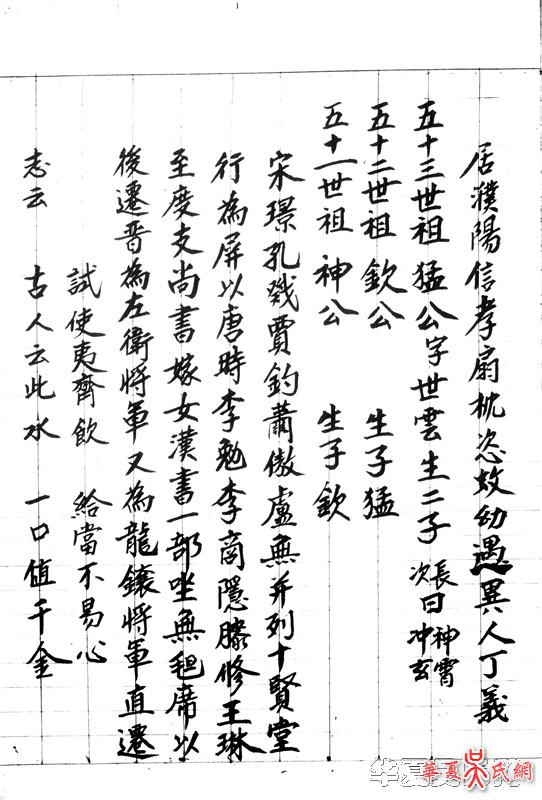 志云 古人云此水 一口值千金
試使夷齊飲 給當不易心
後遷晋為左衛將軍又為龍鑲將軍直遷
至度支尚書嫁女漢書一部坐無毡席以
行為屏以唐時李勉李商隱滕修王琳
宋璟孔戣賈鈞蕭傲盧無并列十賢堂
五十一世祖神公 生子欽
五十二世祖欽公 生子猛
五十三世祖猛公字世雲生二子 長曰神霄 次曰冲玄
居濮陽信孝扇枕恣蚊幼遇異人丁義
華夏吳氏網